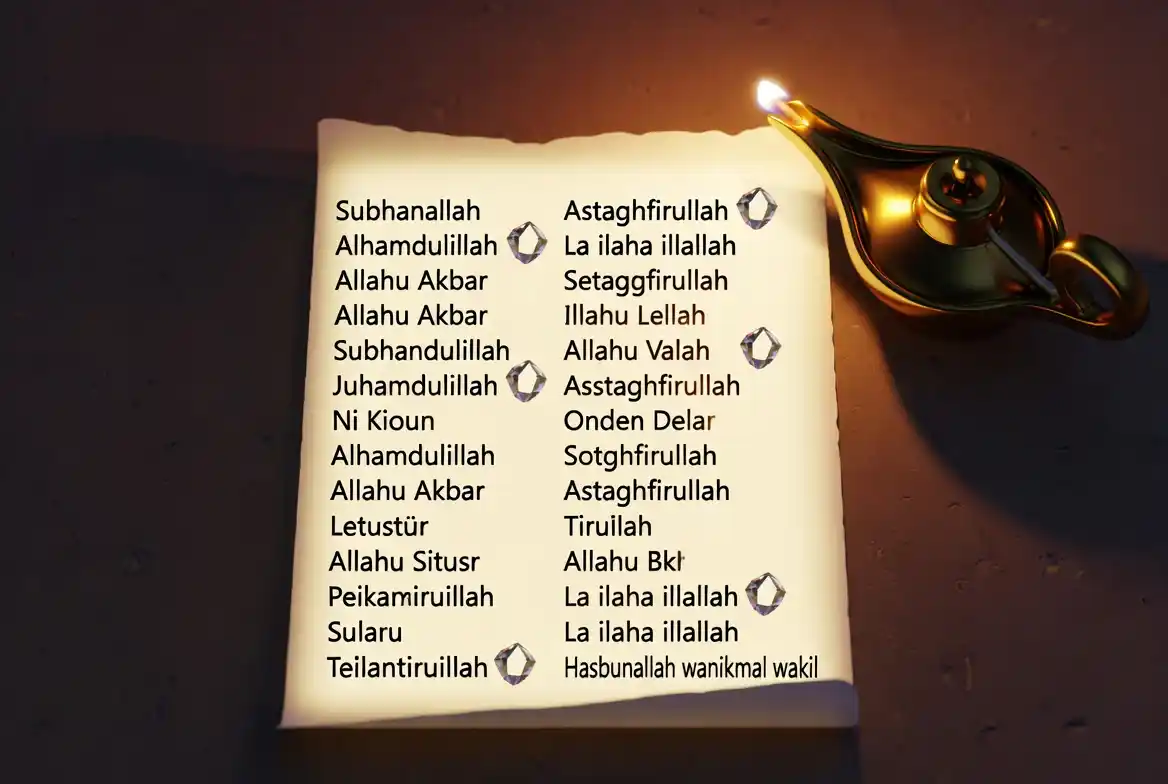 Subhanallah
Alhamdulillah
Allahu Akbar
Allahu Akbar
Subhandulillah
Juhamdulillah
Ni Kioun
Alhamdulillah
Allahu Akbar
Letustür
Allahu Situsr
Peikamiruillah
Sularu
Teilantiruillah
Astaghfirullah
La ilaha illallah
Setaggfirullah
Illahu Lellah
Allahu Valah
Asstaghfirullah
Onden Delar
Sotghfirullah
Astaghfirullah
Tiruilah
Allahu
La ilaha illallah
La ilaha illallah
Hasbunallah wanikmal wakil